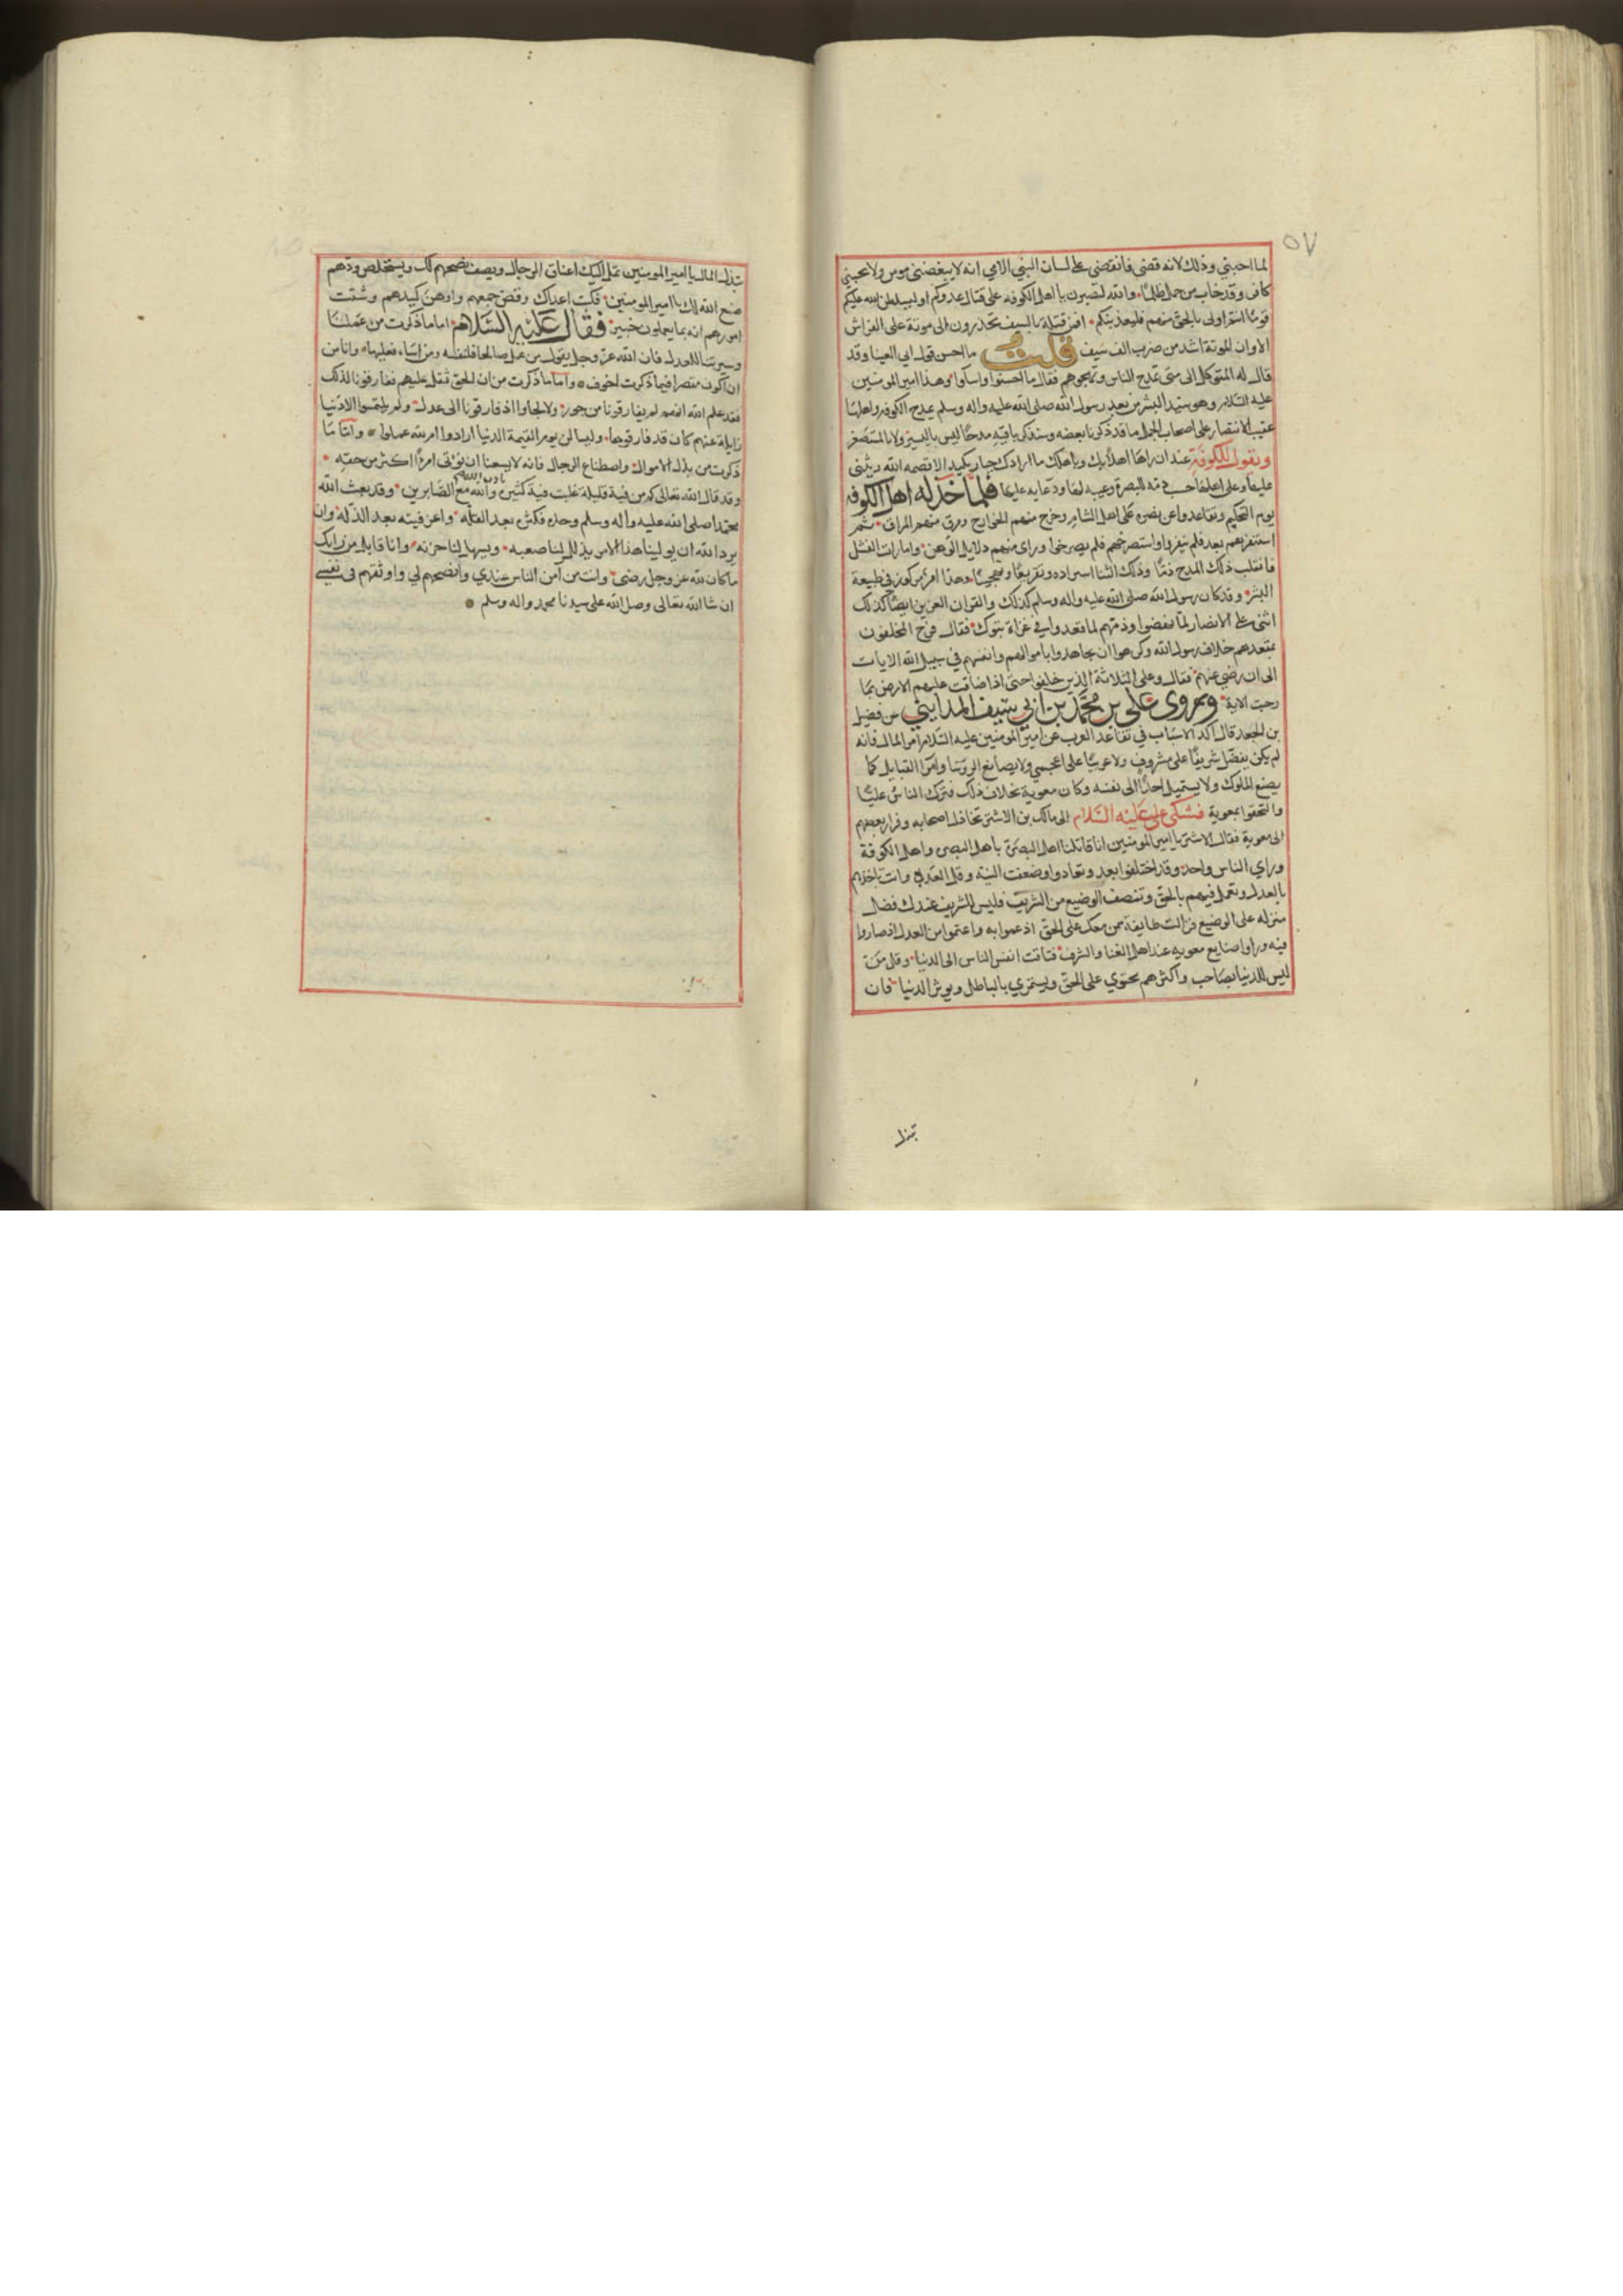 ٥٧
لما احبني وذلك لانه قضى فانقضى على لسان النبي الامي انه لا يبغضني مومن ولا يحبني
كافر وقد خاب من حمل ظلمًا، والله لتصبرن يا اهل الكوفه على قتال عدوكم او ليسلطن الله عليكم
قومًا انتم اولى بالحق منهم فليعذبنكم، افمن قتلة بالسيف تحذرون الى موتة على الفراش
الا وان الموتة اشد من ضرب الف سيف قلت ما احسن قول ابي العينا وقد
قال له المتوكل الى متى تمدح الناس وتهجوهم فقال ما احسنوا واساوا، وهذا امير المومنين
عليه السلام وهو سيد البشر من بعد رسول الله صلى الله عليه واله وسلم يمدح الكوفه واهلها
عقيب الانتصار على اصحاب الجمل ما قد ذكرنا بعضه وسنذكر باقيه مدحًا ليس باليسير ولا بالمستصغر
ويقول للكوفة عند ان راها اهلًا بك وباهلك ما ارادك جبار بكيد الا قصمه الله ويثني
عليها وعلى اهلها حسب ذمه للبصرة وعيبه لها ودعايه عليها فلما خذله اهل الكوفه
يوم التحكيم وتقاعدوا عن نصره على اهل الشام وخرج منهم الخوارج ومرق منهم المراق، ثم
استنفرهم بعد فلم ينفروا واستصرخهم فلم يصرخوا وراى منهم دلايل الوهن، وامارات الفشل
فانقلب ذلك المدح ذمًا وذلك الثنا استراده وتقريعًا وتهجينًا، وهذا امر مركوز في طبيعة
البشر، وقد كان رسول الله صلى الله عليه واله وسلم كذلك والقران العزيز ايضًا كذلك
اثنى على الانصار لما نهضوا وذمهم لما قعدوا في غزاة تبوك، فقال فرح المخلفون
بمقعدهم خلاف رسول الله وكرهوا ان يجاهدوا باموالهم وانفسهم في سبيل الله الايات
الى ان رضي عنهم، فقال وعلى الثلاثة الذين خلفوا حتى اذا ضاقت عليهم الارض بما
رحبت الاية، وروى علي بن محمد بن ابي سيف المدايني عن فضيل
بن الجعد قال اكد الاسباب في تقاعد العرب عن امير المومنين عليه السلام امر المال فانه
لم يكن يفضل شريفًا على مشروف ولا عربيًا على اعجمي ولا يصانع الروسا وامرا القبايل كما
يصنع الملوك ولا يستميل احدًا الى نفسه وكان معوية بخلاف ذلك فترك الناس عليًا
والتحقوا بمعوية فشكى علي عليه السلام الى مالك بن الاشتر تخاذل اصحابه وفرار بعضهم
الى معوية فقال الاشتر يا امير المومنين انا قاتلنا اهل البصرة باهل البصره واهل الكوفة
وراي الناس واحد، وقد اختلفوا بعد وتعادوا وضعفت النيه وقل العدد، وانت تاخذهم
بالعدل وتعمل فيهم بالحق وتنصف الوضيع من الشريف فليس للشريف عندك فضل
منزله على الوضيع فزالت طايفة ممن معك على الحق اذ عموا به واغتموا من العدل اذ صاروا
فيه وراوا صنايع معويه عند اهل الغنا والشرف فتاقت انفس الناس الى الدنيا، وقل من
ليس للدنيا بصاحب واكثرهم يحتوي على الحق ويشتري بالباطل ويوثر الدنيا، فان
تبذل
تبذل المال يا امير المومنين تمل اليك اعناق الرجال وتصف نصيحتهم لك ويستخلص ودهم
صنع الله لك يا امير المومنين، فكبت اعداك وفض جمعهم واوهن كيدهم وشتت
امورهم انه بما يعملون خبير، فقال عليه السلام، اما ما ذكرت من عملنا
وسيرتنا للعدل فان الله عز وجل يقول من عمل صالحا فلنفسه ومن اسا فعليها، وانا من
ان اكون مقصرا فيما ذكرت لخوف، واما ما ذكرت من ان الحق ثقل عليهم ففارقونا لذلك
فقد علم الله انهم لم يفارقونا من جور، ولا لجاوا اذ فارقونا الى عدل، ولم يلتمسوا الا دنيا
زايلة عنهم كان قد فارقوها، وليسالن يوم القيمة الدنيا ارادوا ام لله عملوا، واما ما
ذكرت من بذل الاموال، واصطناع الرجال فانه لا يسعنا ان نوتى امرءًا اكثر من حقه،
وقد قال الله تعالى كم من فية قليلة غلبت فية كثيره باذن الله والله مع الصابرين، وقد بعث الله
محمدا صلى الله عليه واله وسلم وحده فكثره بعد القله، واعز فيته بعد الذله، وان
يرد الله ان يولينا هذا الامر يذلل لنا صعبه، ويسهل لنا حزنه، وانا قابل من رايك
ما كان لله عز وجل رضى، وانت من آمن الناس عندي وانصحهم لي واوثقهم في نفسي
ان شا الله تعالى وصل الله على سيدنا محمد واله وسلم